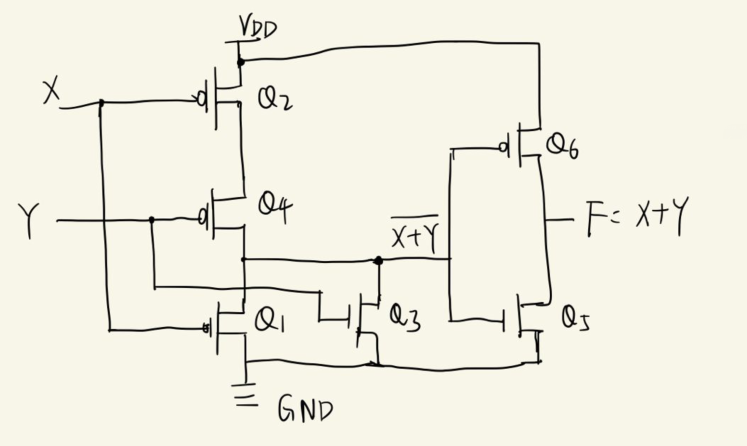 VDD
X
Q2
Q6
Y
Q4
X+Y
F= X+Y
Q1
Q3
Q5
GND